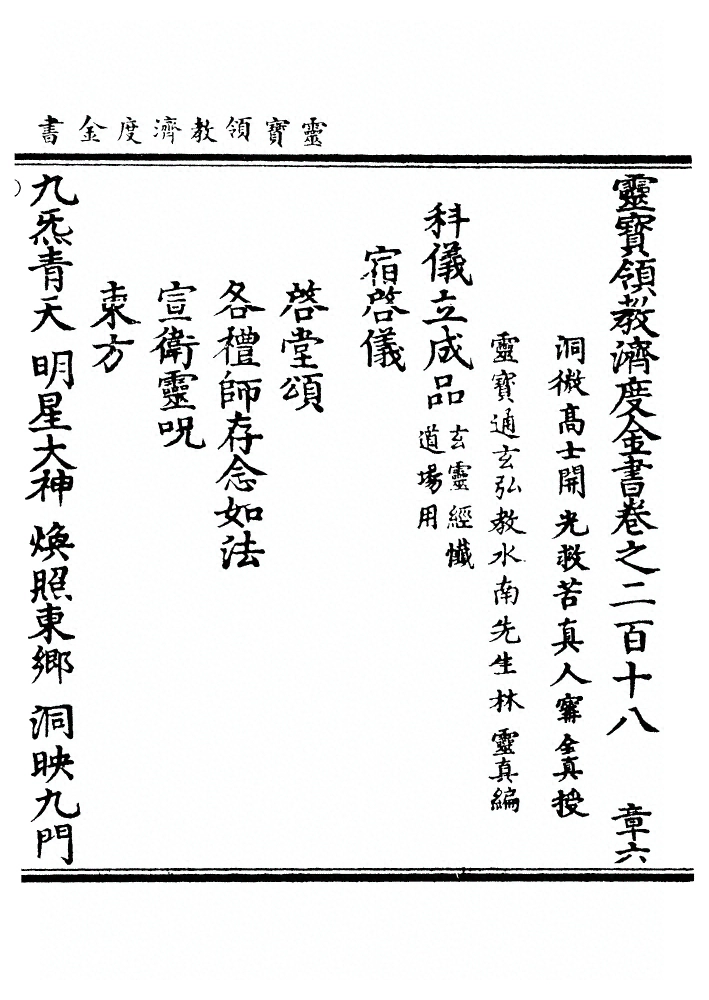 靈寶領教濟度金書
靈寶領教濟度金書卷之二百十八 章六
洞微高士開光救苦真人寗全真授
靈寶通玄弘教水南先生林靈真編
科儀立成品 玄靈經懺道場用
宿啓儀
啓堂頌
各禮師存念如法
宣衛靈呪
東方
九炁青天 明星大神 煥照東鄉 洞映九門